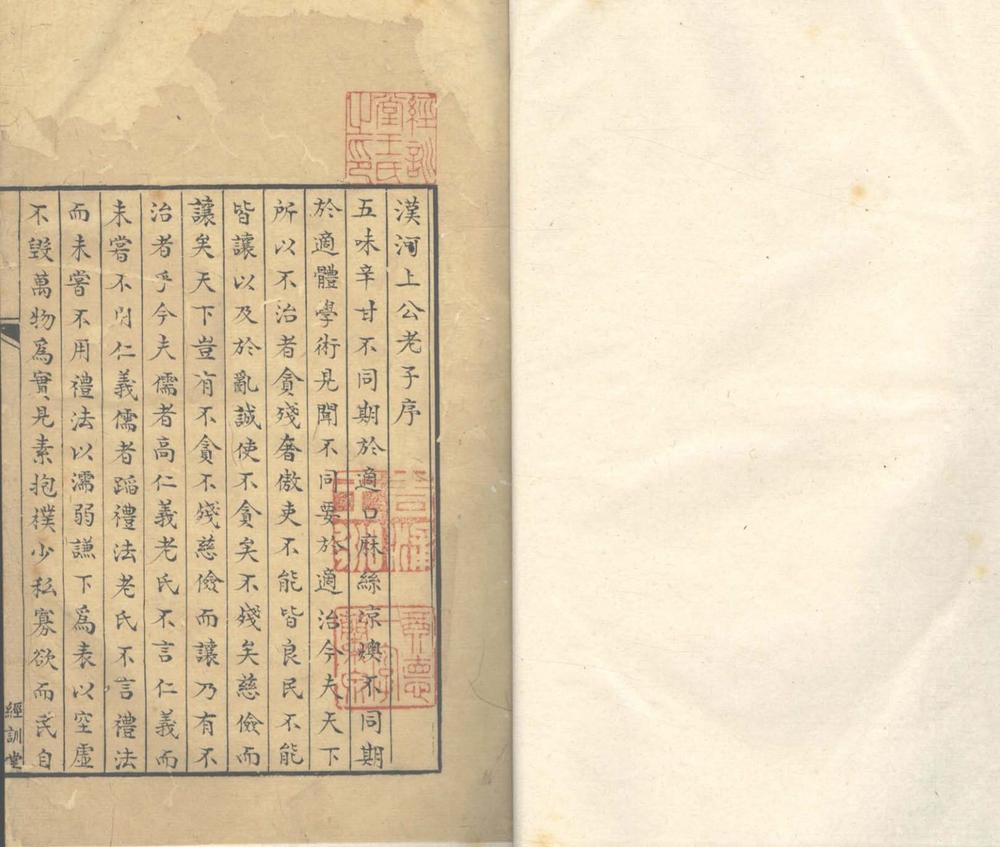 漢河上公老子序
五味辛甘不同期於適口麻絲凉燠不同期
於適體學術見聞不同要於適治今夫天下
所以不治者貪殘奢傲吏不能皆良民不能
皆讓以及於亂誠使不貪矣不殘矣慈儉而
讓矣天下豈有不貪不殘慈儉而讓乃有不
治者乎今夫儒者高仁義老氏不言仁義而
未嘗不用仁義儒者蹈禮法老氏不言禮法
而未嘗不用禮法以濡弱謙下爲表以空虛
不毀萬物爲實見素抱樸少私寡欲而民自
經訓堂
經訓堂王氏之印